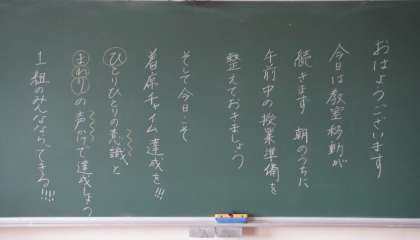 おはようございます
今日は教室移動が
続きます 朝のうちに
午前中の授業準備を
整えておきましょう
そして今日こそ
着席チャイム達成を!!!
ひとりひとりの意識と
まわりの声かけで達成しよう
1組のみんなならできる!!!!